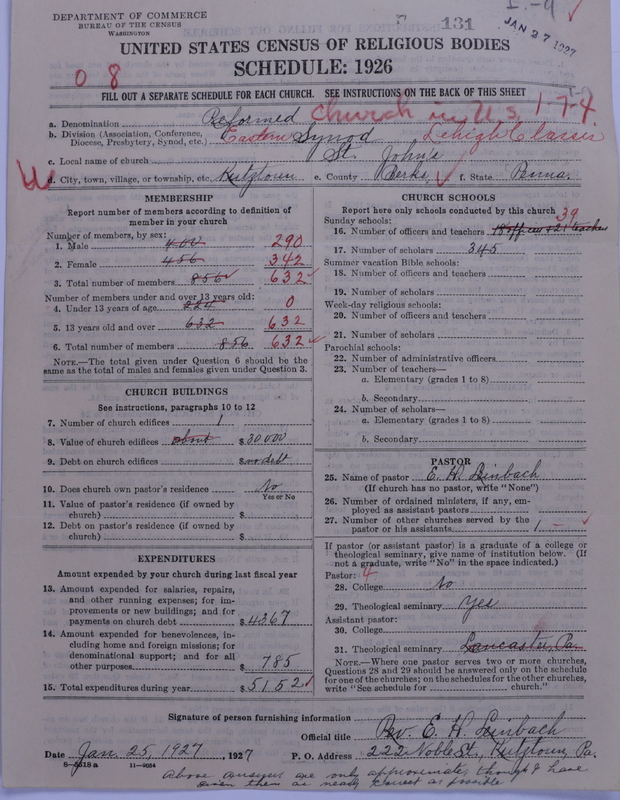 DEPARTMENT OF COMMERCE
BUREAU OF THE CENSUS
WASHINGTON
131
JAN 27 1927
UNITED STATES CENSUS OF RELIGIOUS BODIES
SCHEDULE: 1926
0 8
FILL OUT A SEPARATE SCHEDULE FOR EACH CHURCH. SEE INSTRUCTIONS ON THE BACK OF THIS SHEET
a. Denomination Reformed Church in U.S. 1-7-4
b. Division (Association, Conference, Diocese, Presbytery, Synod, etc.) Eastern Synod Lehigh Classis
c. Local name of church St. John's
d. City, town, village, or township, etc. Kutztown e. County Berks, f. State Penna.
MEMBERSHIP
Report number of members according to definition of
member in your church
Number of members, by sex:
1. Male 400 290
2. Female 456 342
3. Total number of members 856 632
Number of members under and over 13 years old:
4. Under 13 years of age 224 0
5. 13 years old and over 632 632
6. Total number of members 856 632
NOTE.—The total given under Question 6 should be the
same as the total of males and females given under Question 3.
CHURCH BUILDINGS
See instructions, paragraphs 10 to 12
7. Number of church edifices 1
8. Value of church edifices about $30000
9. Debt on church edifices $no debt
10. Does church own pastor's residence No
Yes or No
11. Value of pastor's residence (if owned by
church) $
12. Debt on pastor's residence (if owned by
church) $
EXPENDITURES
Amount expended by your church during last fiscal year
13. Amount expended for salaries, repairs,
and other running expenses; for im-
provements or new buildings; and for
payments on church debt $4367
14. Amount expended for benevolences, in-
cluding home and foreign missions; for
denominational support; and for all
other purposes 785
15. Total expenditures during year $5152
CHURCH SCHOOLS
Report here only schools conducted by this church
Sunday schools: 39
16. Number of officers and teachers 18 officers & 21 teachers
17. Number of scholars 345
Summer vacation Bible schools:
18. Number of officers and teachers
19. Number of scholars
Week-day religious schools:
20. Number of officers and teachers
21. Number of scholars
Parochial schools:
22. Number of administrative officers
23. Number of teachers—
a. Elementary (grades 1 to 8)
b. Secondary
24. Number of scholars—
a. Elementary (grades 1 to 8)
b. Secondary
PASTOR
25. Name of pastor E. H. Leinbach
(If church has no pastor, write "None")
26. Number of ordained ministers, if any, em-
ployed as assistant pastors
27. Number of other churches served by the
pastor or his assistants 1
If pastor (or assistant pastor) is a graduate of a college or
theological seminary, give name of institution below. (If
not a graduate, write "No" in the space indicated.)
Pastor: 4
28. College No
29. Theological seminary Yes
Assistant pastor:
30. College
31. Theological seminary Lancaster, Pa.
NOTE.—Where one pastor serves two or more churches,
Questions 28 and 29 should be answered only on the schedule
for one of the churches; on the schedules for the other churches,
write "See schedule for church."
Signature of person furnishing information
Official title Rev. E. H. Leinbach
Date Jan. 25, 1927, 1927 P. O. Address 222 Noble St., Kutztown, Pa.
8—5618a 11—9054
Above answers are only approximate, though I have
given them as nearly correct as possible